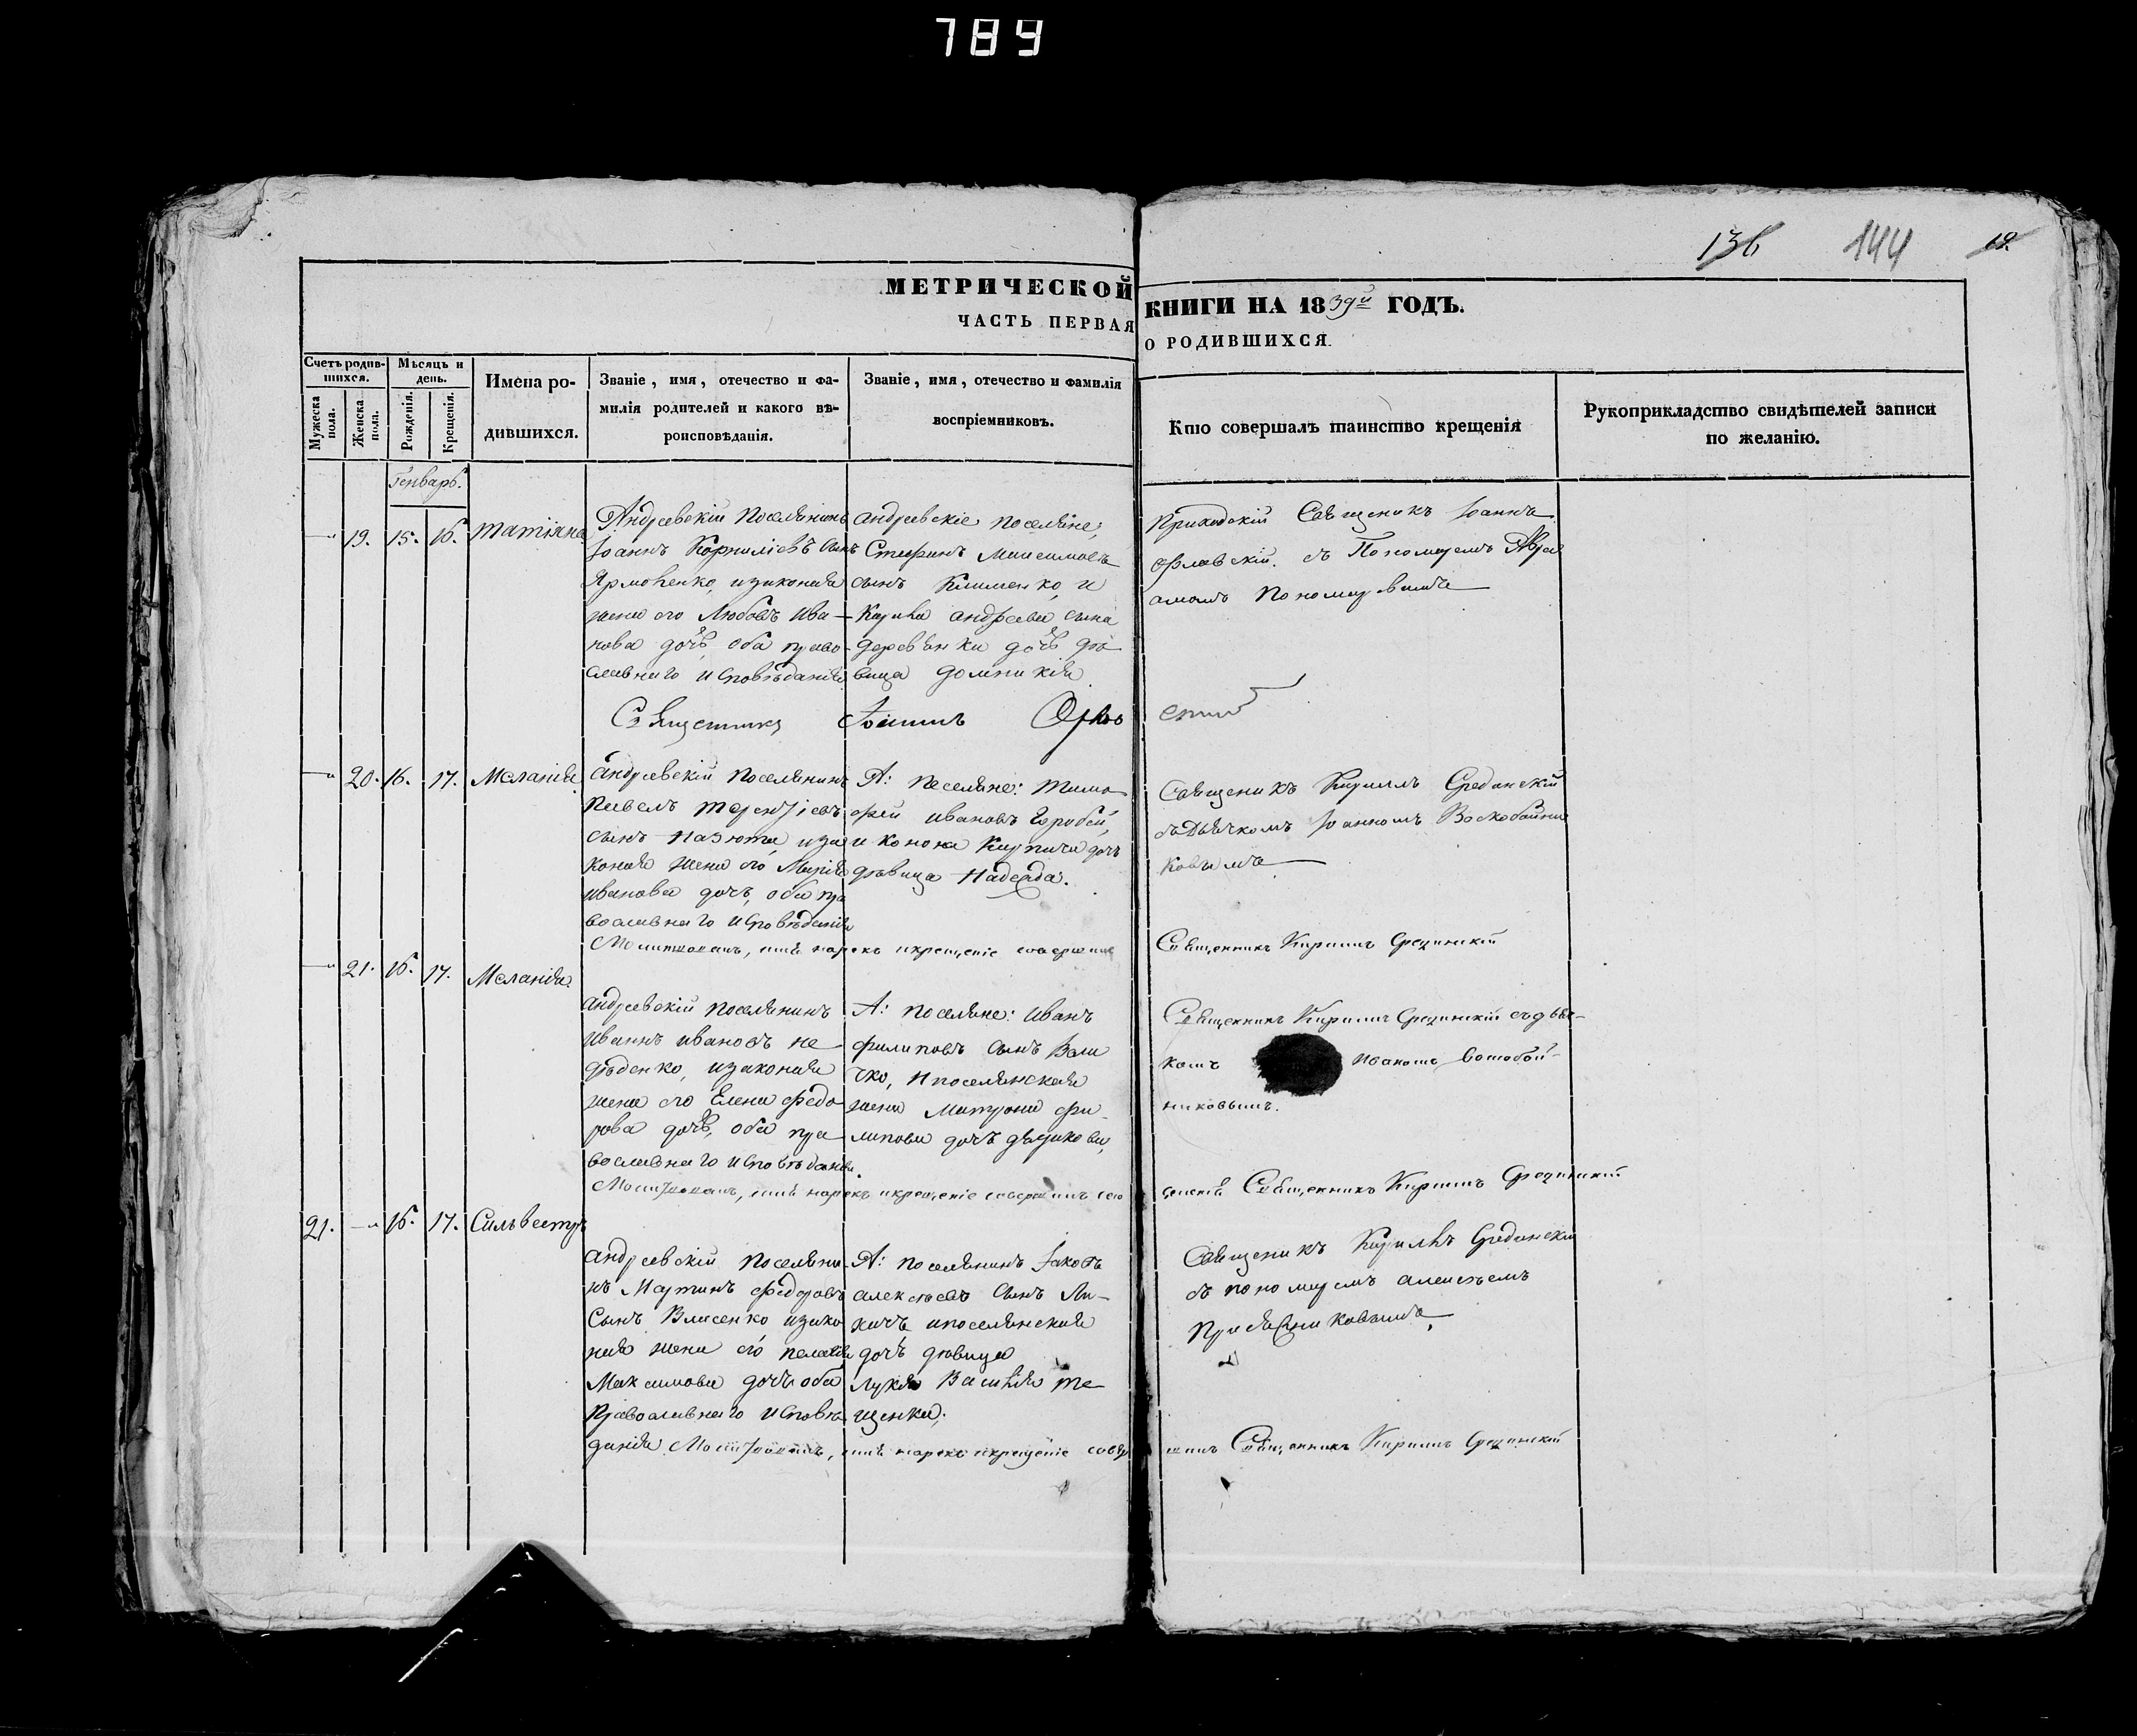 789
136 144 19.
МЕТРИЧЕСКОЙ КНИГИ НА 1839й ГОДЪ.
ЧАСТЬ ПЕРВАЯ О РОДИВШИХСЯ.
Счетъ родив-
шихся.
Мужеска пола.
Женска пола.
Мѣсяцъ и
день.
Рожденія.
Крещенія.
Имена ро-
дившихся.
Званіе, имя, отечество и фа-
милія родителей и какого вѣ-
роисповѣданія.
Званіе, имя, отечество и фамилія
воспріемниковъ.
Кто совершалъ таинство крещенія
Рукоприкладство свидѣтелей записи
по желанію.
Генварь.
19. 15. 16. Татіяна
Андреевскій поселянинъ
Іоаннъ Корниліевъ сынъ
Ярмоленко, изаконная
жена его Любовь Ива-
нова дочь, оба право-
славнаго исповѣданія
Андреевскіе поселяне;
Стефанъ Максимовъ
сынъ Клименко, и
андреева сына
деревянки дочь дѣ-
вица Домникія
Приходскій Священикъ Іоаннъ
Орловскій. съ Пономаремъ
Священникъ Іоаннъ Орло вскій
20. 16. 17. Меланія
Андреевскій поселянинъ
Павелъ Терентіевъ
сынъ Назюта иза
конная жена его Марія
Иванова дочь, оба пра
вославнаго исповѣданія
А: поселяне: Тимо
фей Ивановъ Горобей,
и Конона Кирпича дочь
дѣвица Надежда.
Священикъ Кириллъ Срединскій
съ Дьячкомъ Іоанномъ Воскобойни
ковымъ
Молитвовалъ, имя нарекъ икрещеніе совершилъ Священникъ Кириллъ Срединскій
21. 16. 17. Меланія
Андреевскій поселянинъ
Иваннъ Ивановъ не
дѣденко, изаконная
жена его Елена Федо
рова дочь, оба пра
вославнаго исповѣданія.
А: поселяне: Иванъ
Филиповъ сынъ Вели
чко, ипоселянская
жена Матрона Фи-
липова дочь
Священникъ Кириллъ Срединскій съ дьяч-
комъ Иваномъ Воскобой-
никовымъ.
Молитвовалъ, имя нарекъ икрещеніе совершилъ Священникъ Кириллъ Срединскій
21. 16. 17. Сильвестръ
Андреевскій поселяни
нъ Мартинъ Федоровъ
сынъ Власенко изако
ная жена его Пелагія
Максимова дочь оба
православнаго исповѣ
данія
А: поселянинъ Іаковъ
Алексѣевъ сынъ Ли-
хачъ ипоселянская
дочь дѣвица
Лукія Василія Те-
щенка.
Священикъ Кириллъ Срединскій
съ пономаремъ Алексѣемъ
Молитвовалъ, имя нарекъ икрещеніе совер шилъ Священникъ Кириллъ Срединскій